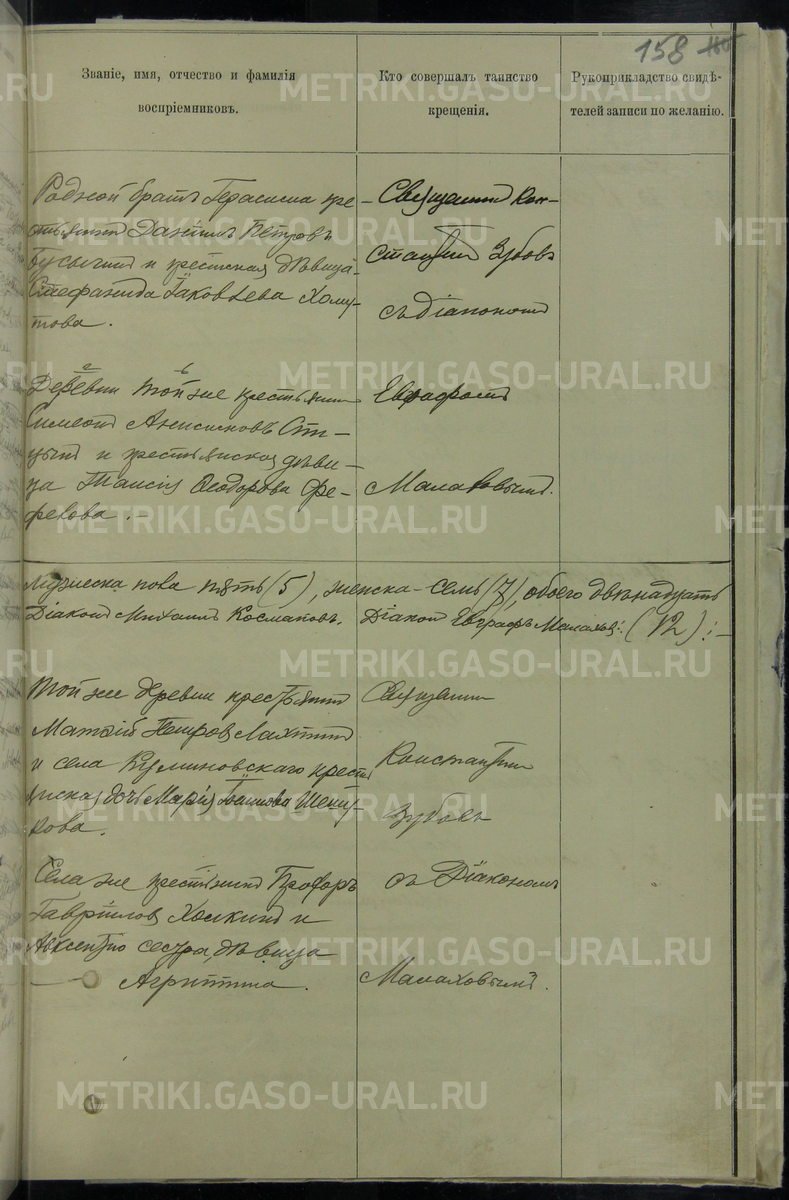 158
Званіе, имя, отчество и фамилія
воспріемниковъ.
Кто совершалъ таинство
крещенія.
Рукоприкладство свидѣ-
телей записи по желанію.
Родной братъ Герасима кре-
Даніилъ Петровъ
и крестьская дѣвица
Стефанида Іаковлева Хому-
това.
Священникъ Кон-
стантинъ Зубовъ
съ діакономъ
Деревни той же крестьянинъ
Симеонъ Анисимовъ
и крестьянская дѣви-
ца Таисія Ѳеодорова Фе-
фелова.
Евграфомъ
Малаховымъ.
пола пять (5), женска - семь (7), обоего двѣнадцать
Діаконъ Михаилъ Космаковъ. Діаконъ Евграфъ Малаховъ: (12):-
Той же деревни крестьянинъ
Матѳій Петровъ
и села Куминовскаго кресть
янская дочь Марія Іоаннова
кова.
Священникъ
Константинъ
Зубовъ
съ Діакономъ
Малаховымъ.
Села же крестьянинъ Прохоръ
Гавріиловъ и
сестра дѣвица
Агриппина.
METRIKI.GASO-URAL.RU